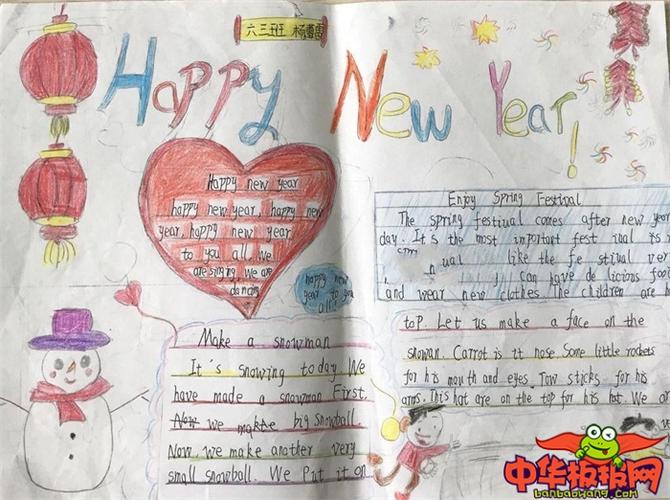 六三班 杨
Happy New Year!
Happy new year
happy new year, happy new
year, happy new year
to you all. We
are singing, We are
dancing.
happy new
year to you
all!
Make a snowman
It's snowing today. We
have made a snowman First,
Now we make big snowball.
Now, we make another very
small snowball. We Put it on
Enjoy Spring Festival
The spring festival comes after new year
day. It's the most important fest ival
like the fe stival
can have de licious
and wear new clothes. The children are
top Let us make a face on the
snowan. Carrot is it nose Some little rockets
for his mouth and eyes. Tow sticks for his
arms. This hat are on the top for his hat. We
中华板报网
banbaowang.com